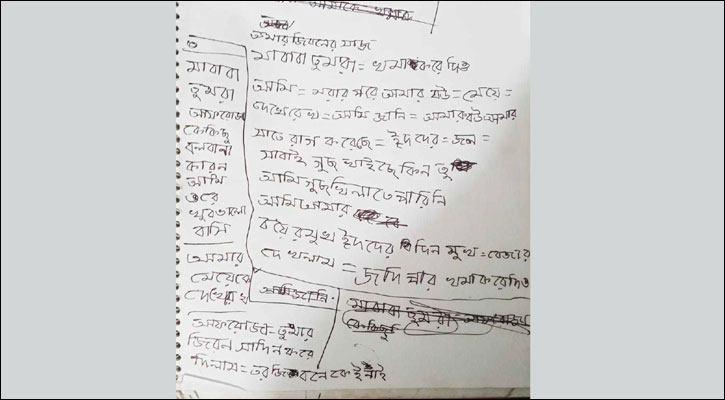 আমার জিবনের সাজা
মাবাবা তুমরা = খমা করে দিও
আমি = মরার পরে আমার বউ = মেয়ে =
দেখে রেখ = আমি জানি = আমার বউ আমার
সাতে রাগ করেছে = ইদদের = জন =
সাবাই গুছ খাইছে কিন তু
আমি গুছ খিলাতে পারিনি
আমি আমার
বয়ের মুখ ইদদের দিন মুখ = বেজার
দেখলাম = জদি পার খমা করে দিও
মাবাবা
তুমরা
আফরোজা
কেকিছু
বলবানা
কারন
আমি
ওরে
খুব ভালো
বাসি
আমার
মেয়েকে
দেখে রাখ
আমি জানি
মাবাবা তুমরা
কেকিছু
আফরোজা = তুমার
জিবন সাদিন করে
দিলাম = তর জিবনে কেই নাই